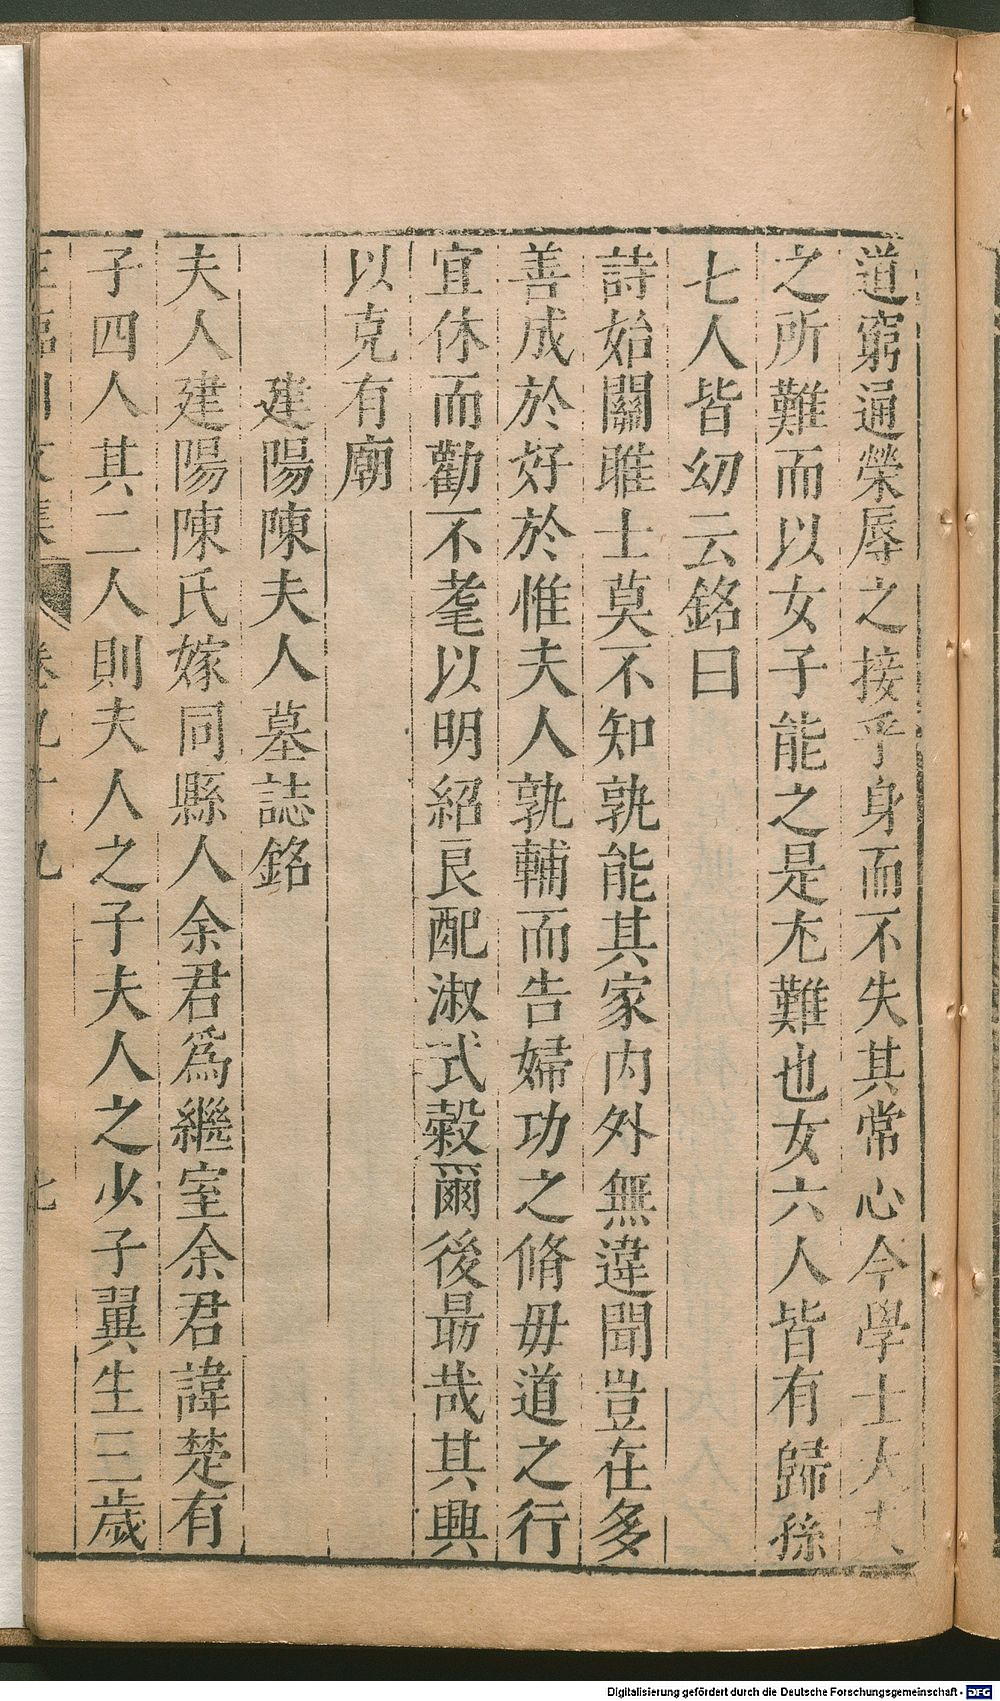 道窮通榮辱之接乎身而不失其常心今學士大夫
之所難而以女子能之是尤難也女六人皆有歸孫
七人皆幼云銘曰
詩始關雎士莫不知孰能其家内外無違聞豈在多
善成於好於惟夫人孰輔而告婦功之脩毋道之行
宜休而勸不耄以明紹艮配淑式穀爾後朂哉其興
以克有廟
建陽陳夫人墓誌銘
夫人建陽陳氏嫁同縣人余君爲繼室余君諱楚有
子四人其二人則夫人之子夫人之少子翼生三歲
卷九十九
七
Digitalisierung gefördert durch die Deutsche Forschungsgemeinschaft - DFG